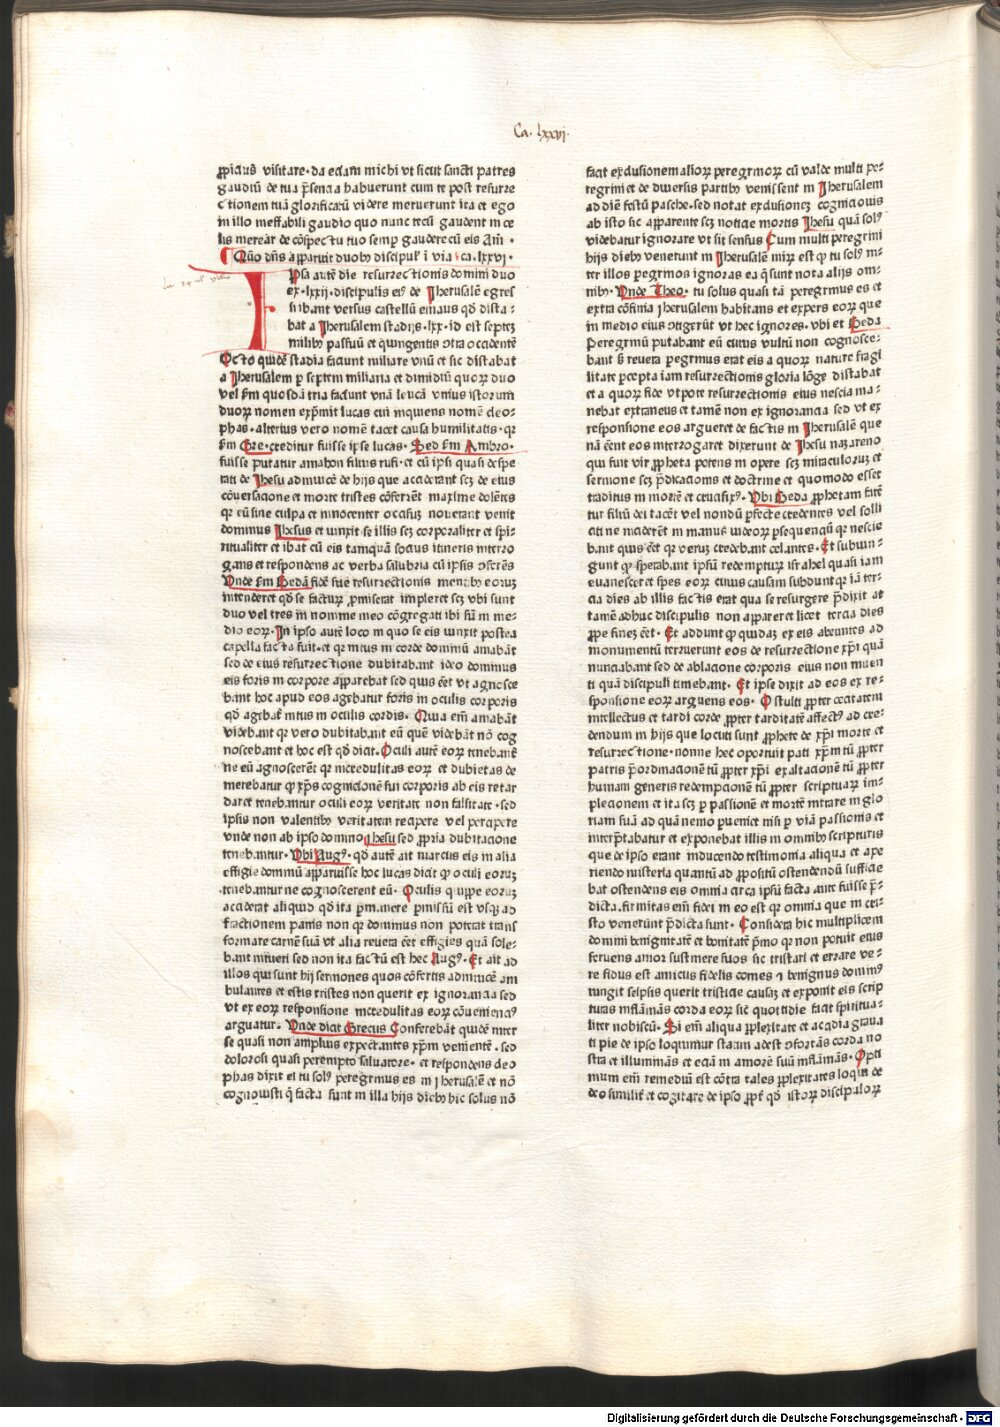 Ca. lxxvj.
ꝓpicius visitare·da eciam michi vt sicut sancti patres
gaudiū de tua p̄sencia habuerunt cum te post resurre
ctionem tuā glorificatū videre meruerunt ita et ego
in illo ineffabili gaudio quo nunc tecū gaudent in ce
lis merear de cōspectu tuo semꝑ gaudere cū eis Am̄·
Quō dn̄s apparuit duobꝫ discipul' ī via·ca·lxxvj·
Ipsa autē die resurrectionis domini duo
ex·lxxij·discipulis eiꝰ de Jherusalē egres
si ibant versus castellū emaus qd̄ dista-
bat a Jherusalem stadijs·lxx·id est septeꝫ
milibꝫ passuū et quingentis ↄtra occidentē
Octo quidē stadia faciunt miliare vnū et sic distabat
a Jherusalem ꝑ septem miliaria et dimidiū quoꝝ duo
vel ẜm quosdā tria faciunt vnā leucā vnius istorum
duoꝝ nomen exp̄mit lucas cui inquiens nomē cleo-
phas·alterius vero nomē tacet causa humilitatis·qꝛ
ẜm Gre·creditur fuisse ip̄se lucas·Sed ẜm Ambro·
fuisse putatur amahon filius rufi·et cū ip̄si quasi despe
rati de Jhesu adinuicē de hijs que acciderant scꝫ de eius
cōuersacione et morte tristes cōferrēt maxime dolētes
qꝛ eū sine culpa et innocenter occisuꝫ nouerant venit
dominus Jhesus et iunxit se illis scꝫ corporaliter et spi-
ritualiter et ibat cū eis tamquā socius itineris interro
gans et respondens ac verba salubria cū ip̄sis ↄferēs
Vnde ẜm Bedā fidē sue resurrectionis mentibꝫ eoruꝫ
intenderet qd̄ se facturꝰ ꝓmiserat impleret scꝫ vbi sunt
duo vel tres in nomine meo cōgregati ibi sū in me-
dio eoꝝ·In ip̄so autē loco in quo se eis iunxit postea
capella facta fuit·et qꝛ intus in corde dominū amabāt
sed de eius resurrectione dubitabant ideo dominus
eis foris in corpore apparebat sed quis eēt vt agnosce
bant hoc apud eos agebatur foris in oculis corporis
qd̄ agebat̉ intus in oculis cordis·Quia em̄ amabāt
videbant qꝛ vero dubitabant eū quē videbāt nō cog
noscebant et hoc est qd̄ dicit·Oculi autē eoꝝ tenebantˢ
ne eū agnoscerēt qꝛ incredulitas eoꝝ et dubietas de
merebatur ꝙ xp̄us cognicionē sui corporis ab eis retar
daret tenebantur oculi eoꝝ veritate non falsitate·sed
ip̄sis non valentibꝫ veritatem recipere vel percipere
vnde non ab ip̄so domino Jhesu sed ꝓpria dubitacione
tenebantur·Vbi Augꝰ·qd̄ autē ait marcus eis in alia
effigie dominū apparuisse hoc lucas dicit ꝙ oculi eoruꝫ
tenebantur ne cognoscerent eū·Oculis quippe eoruꝫ
acciderat aliquid qd̄ ita ꝑmanere ꝑmissū est vsqꝫ ad
fractionem panis non qꝛ dominus non poterat trans
formare carnē suā vt alia reuera eēt effigies quā sole-
bant intueri sed non ita factū est hec Augꝰ·Et ait ad
illos qui sunt hij sermones quos cōfertis adinuicē am
bulantes et estis tristes non querit ex ignorancia sed
vt ex eoꝝ responsione incredulitas eoꝝ cōuenienciꝰ
arguatur·Vnde dicit Grecus Conferebāt quidē inter
se quasi non amplius expectantes xp̄m veniente·sed
dolorosi quasi perempto saluatore·et respondens cleo
phas dixit ei tu solꝰ peregrinus es in Jherusalē et nō
cognouisti q̄ facta sunt in illa hijs diebꝫ hic solus nō
facit exclusionem alioꝝ peregrinoꝝ cū valde multi pe-
regrini et de diuersis partibꝫ venissent in Jherusalem
ad diē festū pasche·sed notat exclusioneꝫ cognicionis
ab isto sic apparente scꝫ noticie mortis Jhesu quā solꝰ
videbatur ignorare vt sit sensus Cum multi peregrini
hijs diebꝫ venerunt in Jherusalē mirꝫ est ꝙ tu solꝰ in-
ter illos pegrinos ignoras ea q̄ sunt nota alijs om-
nibꝫ·Vnde Theo·tu solus quasi tā peregrinus es et
extra cōfinia Jherusalem habitans et expers eoꝝ que
in medio eius ↄtigerūt vt hec ignores·vbi et Beda
Peregrinū putabant eū cuius vultū non cognosce-
bant ẜ reuera pegrinus erat eis a quoꝝ nature fragi
litate ꝑcepta iam resurrectionis gloria lōge distabat
et a quoꝝ fide vtpote resurrectionis eius nescia ma-
nebat extraneus et tamē non ex ignorancia sed vt ex
responsione eos argueret de factis in Jherusalem que
nā eēnt eos interrogaret dixerunt de Jhesu nazareno
qui fuit vir ꝓpheta potens in opere scꝫ miraculoruꝫ et
sermone scꝫ p̄dicacionis et doctrine et quomodo esset
traditus in mortē et crucifixꝰ·Vbi Beda ꝓphetam fatē
tur filiū dei tacēt vel nondū ꝑfecte credentes vel solli
citi ne inciderēt in manus iudeoꝝ ꝑsequenciū qꝛ nescie
bant quis eēt qꝛ veruꝫ credebant celantes·Et subiun-
gunt ꝙ sperabant ipsū redempturꝫ israhel quasi iam
euanescet et spes eoꝝ cuius causam subdunt qꝛ iā ter-
cia dies ab illis factis erat qua se resurgere p̄dixit at
tamē adhuc discipulis non appareret licet tercia dies
ꝓpe fineꝫ eēt·Et addunt ꝙ quidaꝫ ex eis abeuntes ad
monumentū terruerunt eos de resurrectione xp̄i quā
nunciabant sed de ablacione corporis eius non inuen
ti quā discipuli timebant·Et ipse dixit ad eos ex re-
sponsione eoꝝ arguens eos·O stulti ꝓpter cecitatem
intellectus et tardi corde ꝓpter tarditatē affectꝰ ad cre-
dendum in hijs que locuti sunt ꝓphete de xp̄i morte et
resurrectione·nonne hec oportuit pati xp̄m tū ꝓpter
patris p̄ordinacionē tū ꝓpter xp̄i exaltacionē tū ꝓpter
humani generis redempcionē tū ꝓpter scripturaꝝ im-
plecionem et ita scꝫ ꝑ passionē et mortē intrare in glo
riam suā ad quā nemo puenit nisi ꝑ viā passionis et
interp̄tabatur et exponebat illis in omnibꝫ scripturis
que de ipso erant inducendo testimonia aliqua et ape
riendo misteria quantū ad ꝓpositū ostendendū suffcie
bat ostendens eis omnia circa ipsū facta ante fuisse p̄-
dicta·firmitas em̄ fidei in eo est qꝛ omnia que in cri-
sto venerūnt p̄dicta sunt·Considera hic multiplicem
domini benignitatē et bonitatē p̄mo qꝛ non potuit eius
feruens amor sustinere suos sic tristari et errare ve-
re fidus est amicus fidelis comes ⁊ benignus dominꝰ
iungit seipsis querit tristicie causaꝫ et exponit eis scrip
turas inflāmās corda eoꝝ sic quottidie facit spiritua-
liter nobiscū·Si em̄ aliqua ꝑplexitate et acadia graua
ti pie de ipso loquimur statim adest ↄfortās corda no
stra et illuminās et eciā in amorē suū inflāmās·Opti
mum em̄ remediū est cōtra tales ꝑplexitates loqui de
deo similit̉ et cogitare de ipso ꝓpt̉ qd̄ istoꝝ discipuloꝝ
Digitalisierung gefördert durch die Deutsche Forschungsgemeinschaft - DFG